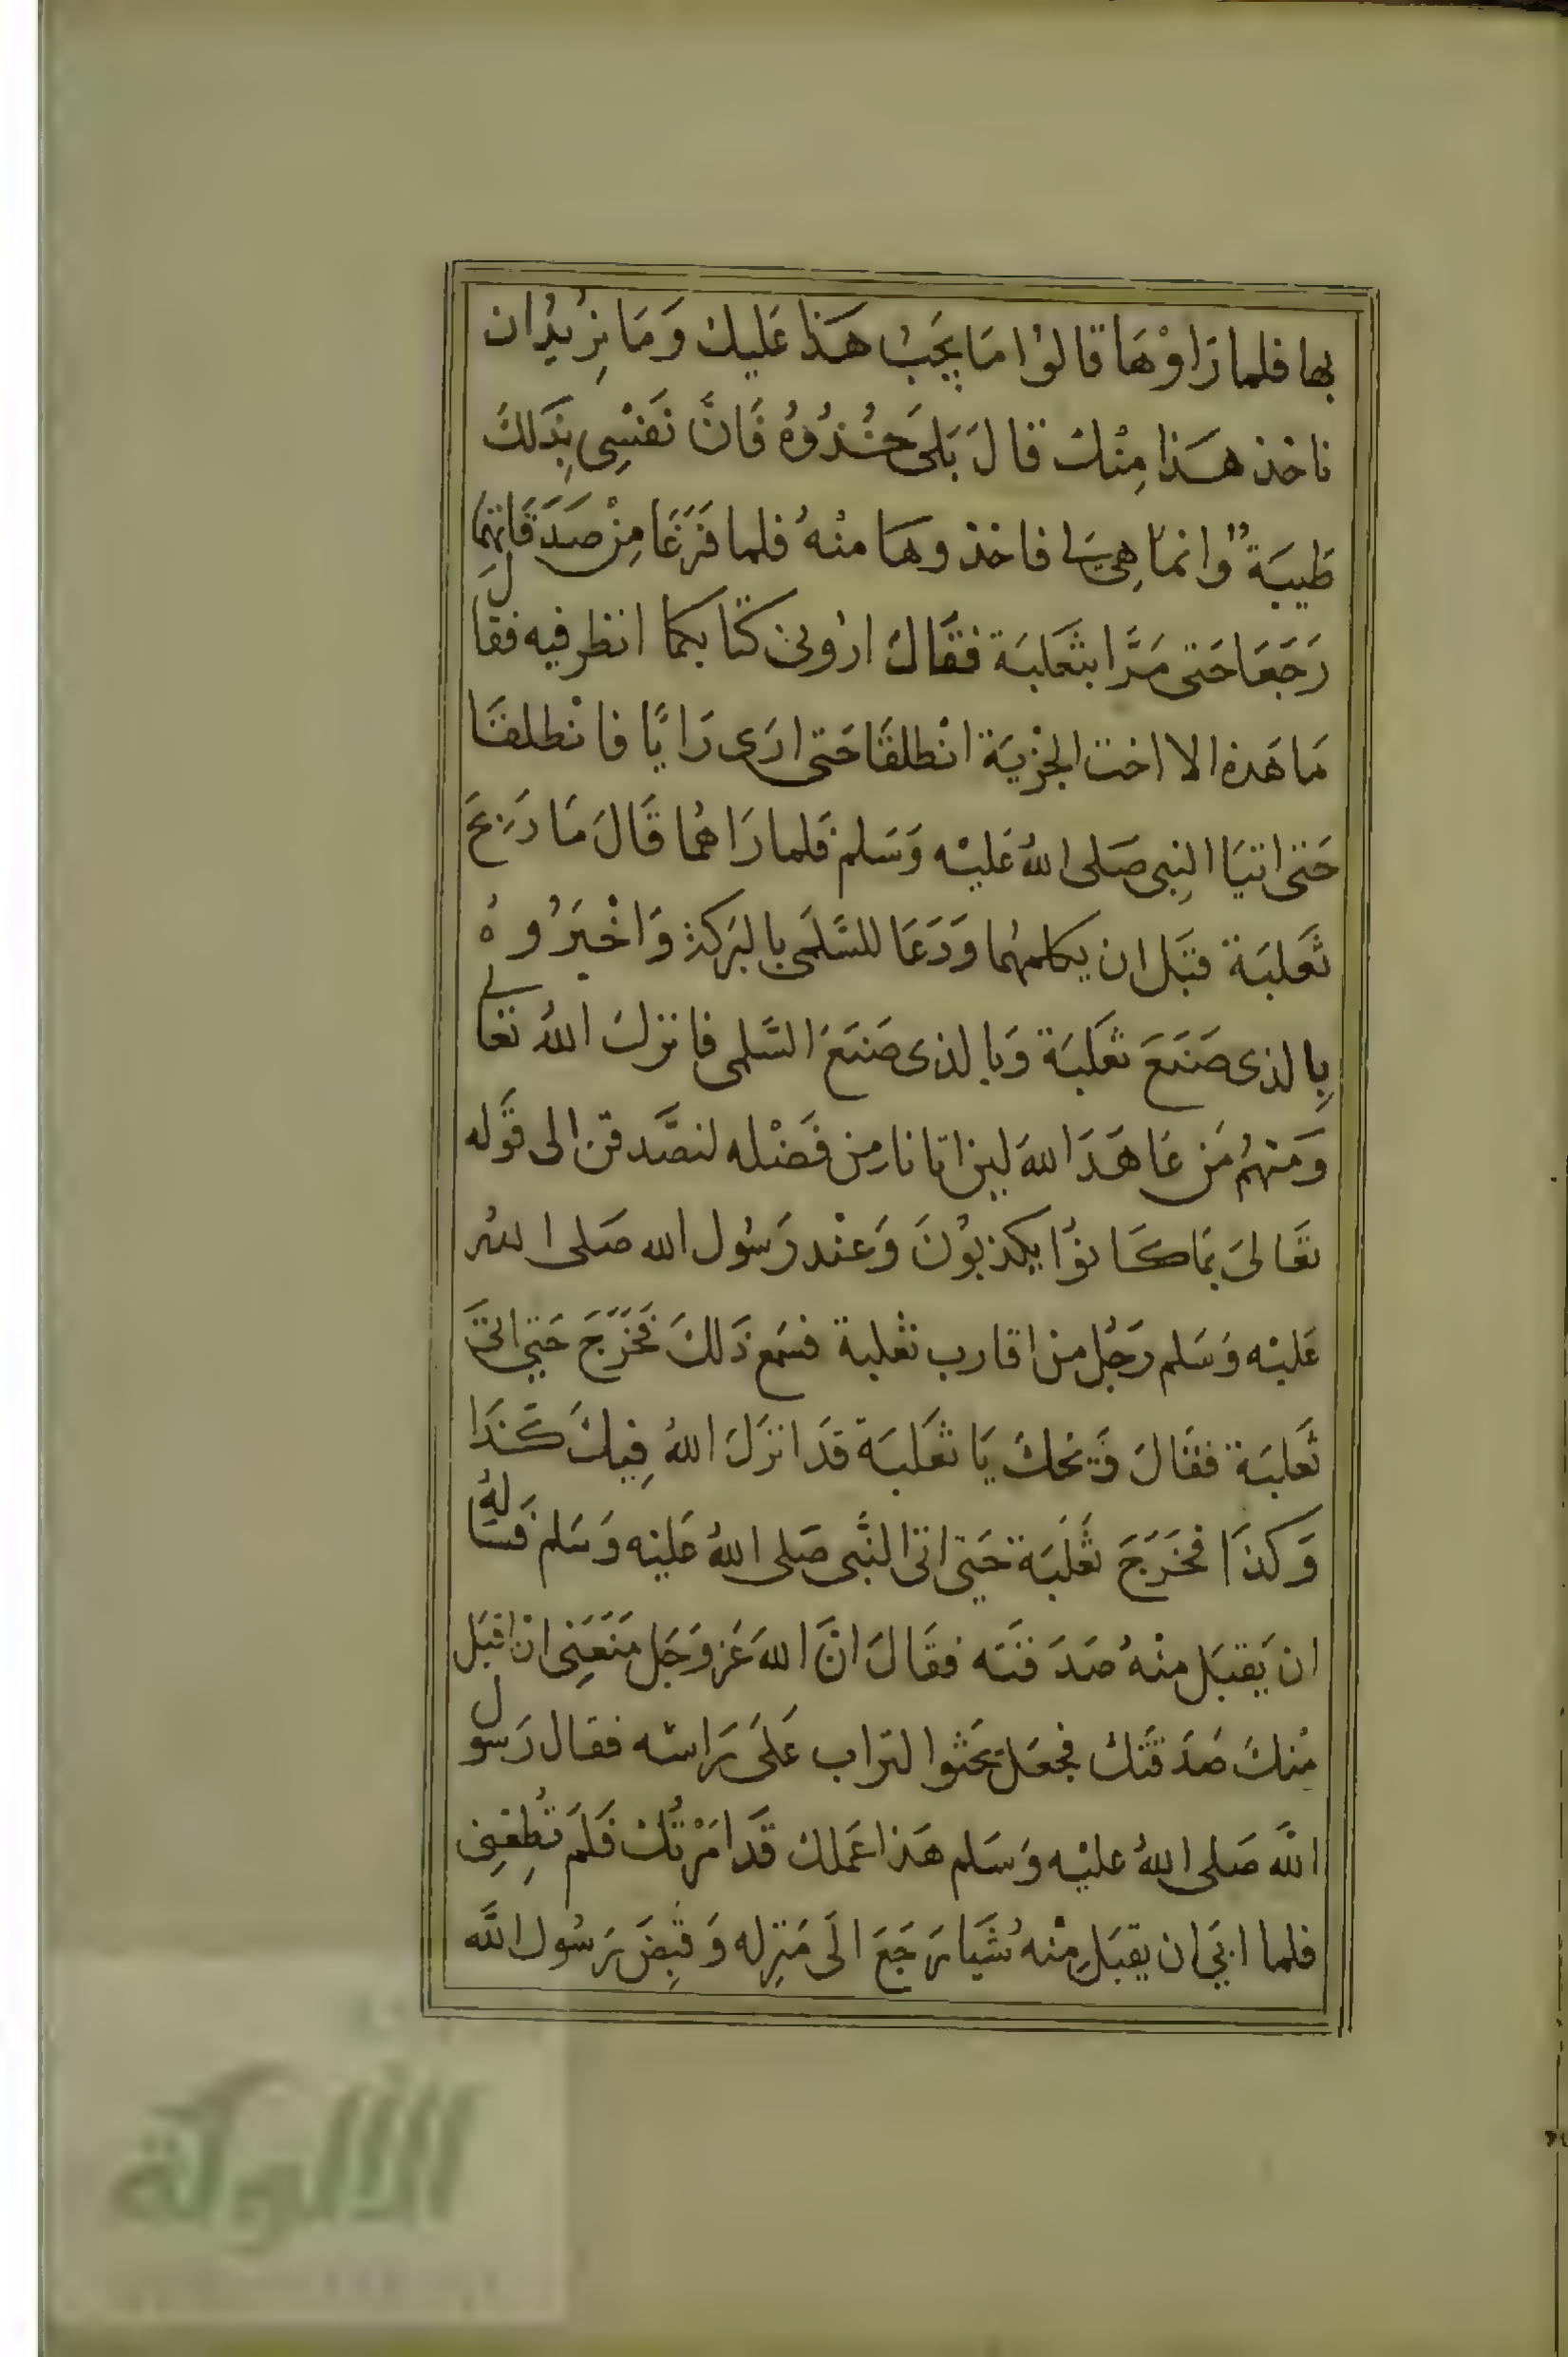 بها فلما رَاوْهَا قالوُا مَا يجَبُ هَذا عَليك وَمَا نِرُيدُ ان
ناخذ هَذا مِنْك قالَ بَلىَ خُذُوُهُ فَانَّ نَفْسِى بِذَلكَ
طَيبَةٌ وانمَا هِىَ لے فاخذوهَا منْهُ فلما فَرَغَا مِنْ صَدَقَاتهِمَا
رَجَعَا حَتى مَرَّا بثَعَلبَة فقَالَ ارُونى كتَابكما انظر فيه فقال
مَا هَذه الا اخت الجزْيَة انْطلقَا حَتى ارَى رَايًا فانْطلقَا
حَتى اتيَا النِبى صَلى اللهُ عَليْه وَسَلم فَلما رَاهُما قَالَ مَا رَبحَ
ثَعَلبَة قبَل ان يكلمهُما وَدَعَا للسَّلَمى بالبَركة وَاخْبَرُوهُ
بِالذى صَنَعَ ثعَلبَة وَبالذى صَنعَ السَّلمى فانزلَ اللهُ تعَالے
وَمَنْهمُ مَن عَاهَدَ اللهَ لين اتانا مِن فَضْله لنصَّدقن الى قَوله
تعَالىَ بمَا كَانوُا يكذبوُنَ وَعنْد رَسُول الله صَلى اللهُ
عَليْه وَسَلم رَجُل من اقارب ثعْلبة فسَمع ذَلكَ فَخَرَجَ حَتى اتىَ
ثَعَلبَة فقَالَ وَيحَكَ يَا ثعَلبَة قَد انزَلَ اللهُ فِيكَ كَذَا
وَكذَا فخَرَجَ ثعَلَبَة حَتى اتى النَّبى صَلى اللهُ عَليْه وَسَلم فَسَالهُ
ان يَقبَل منْهُ صَدَقتَه فقَالَ انَّ اللهَ عَز وَجَل مَنَعَنِى ان اقبَل
مْنكَ صَدَقَتكْ فجعَل يحَثوا لتراب عَلَى رَاسْه فقال رَسول
اللَّه صَلى اللهُ عليْه وَسَلم هَذا عَملك قَد امَرْتُك فَلَم تُطِعْنِى
فلما ابىَ ان يقبَل مِنْهُ شَيَا رَجَعَ الَى مَنزِله وَقُبِضَ رَسُول اللَّه
الألوكة